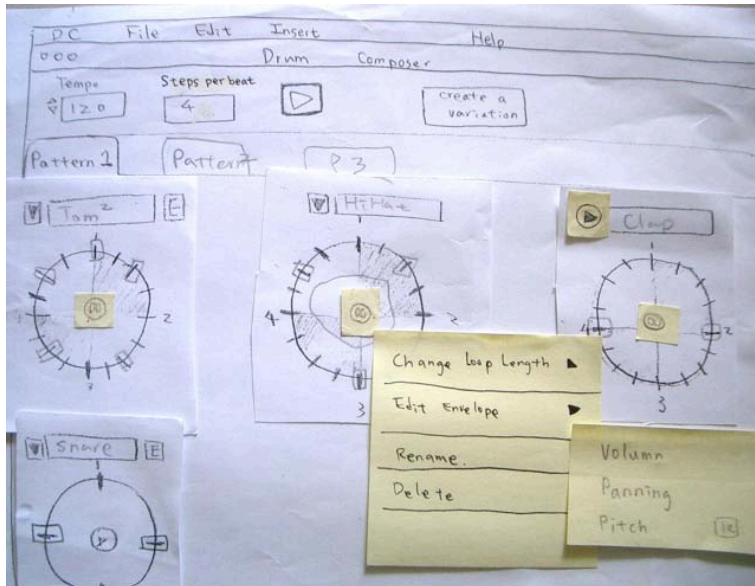 DC File Edit Insert Help
Drum Composer
Tempo Steps per beat
120 4 create a
variation
Pattern 1 Pattern P3
Tom 2 E HiHat Clap
1
2 4 2 4 2
3 3
Change Loop Length
Edit Envelope
Rename.
Delete
Volumn
Panning
Pitch
Snare E